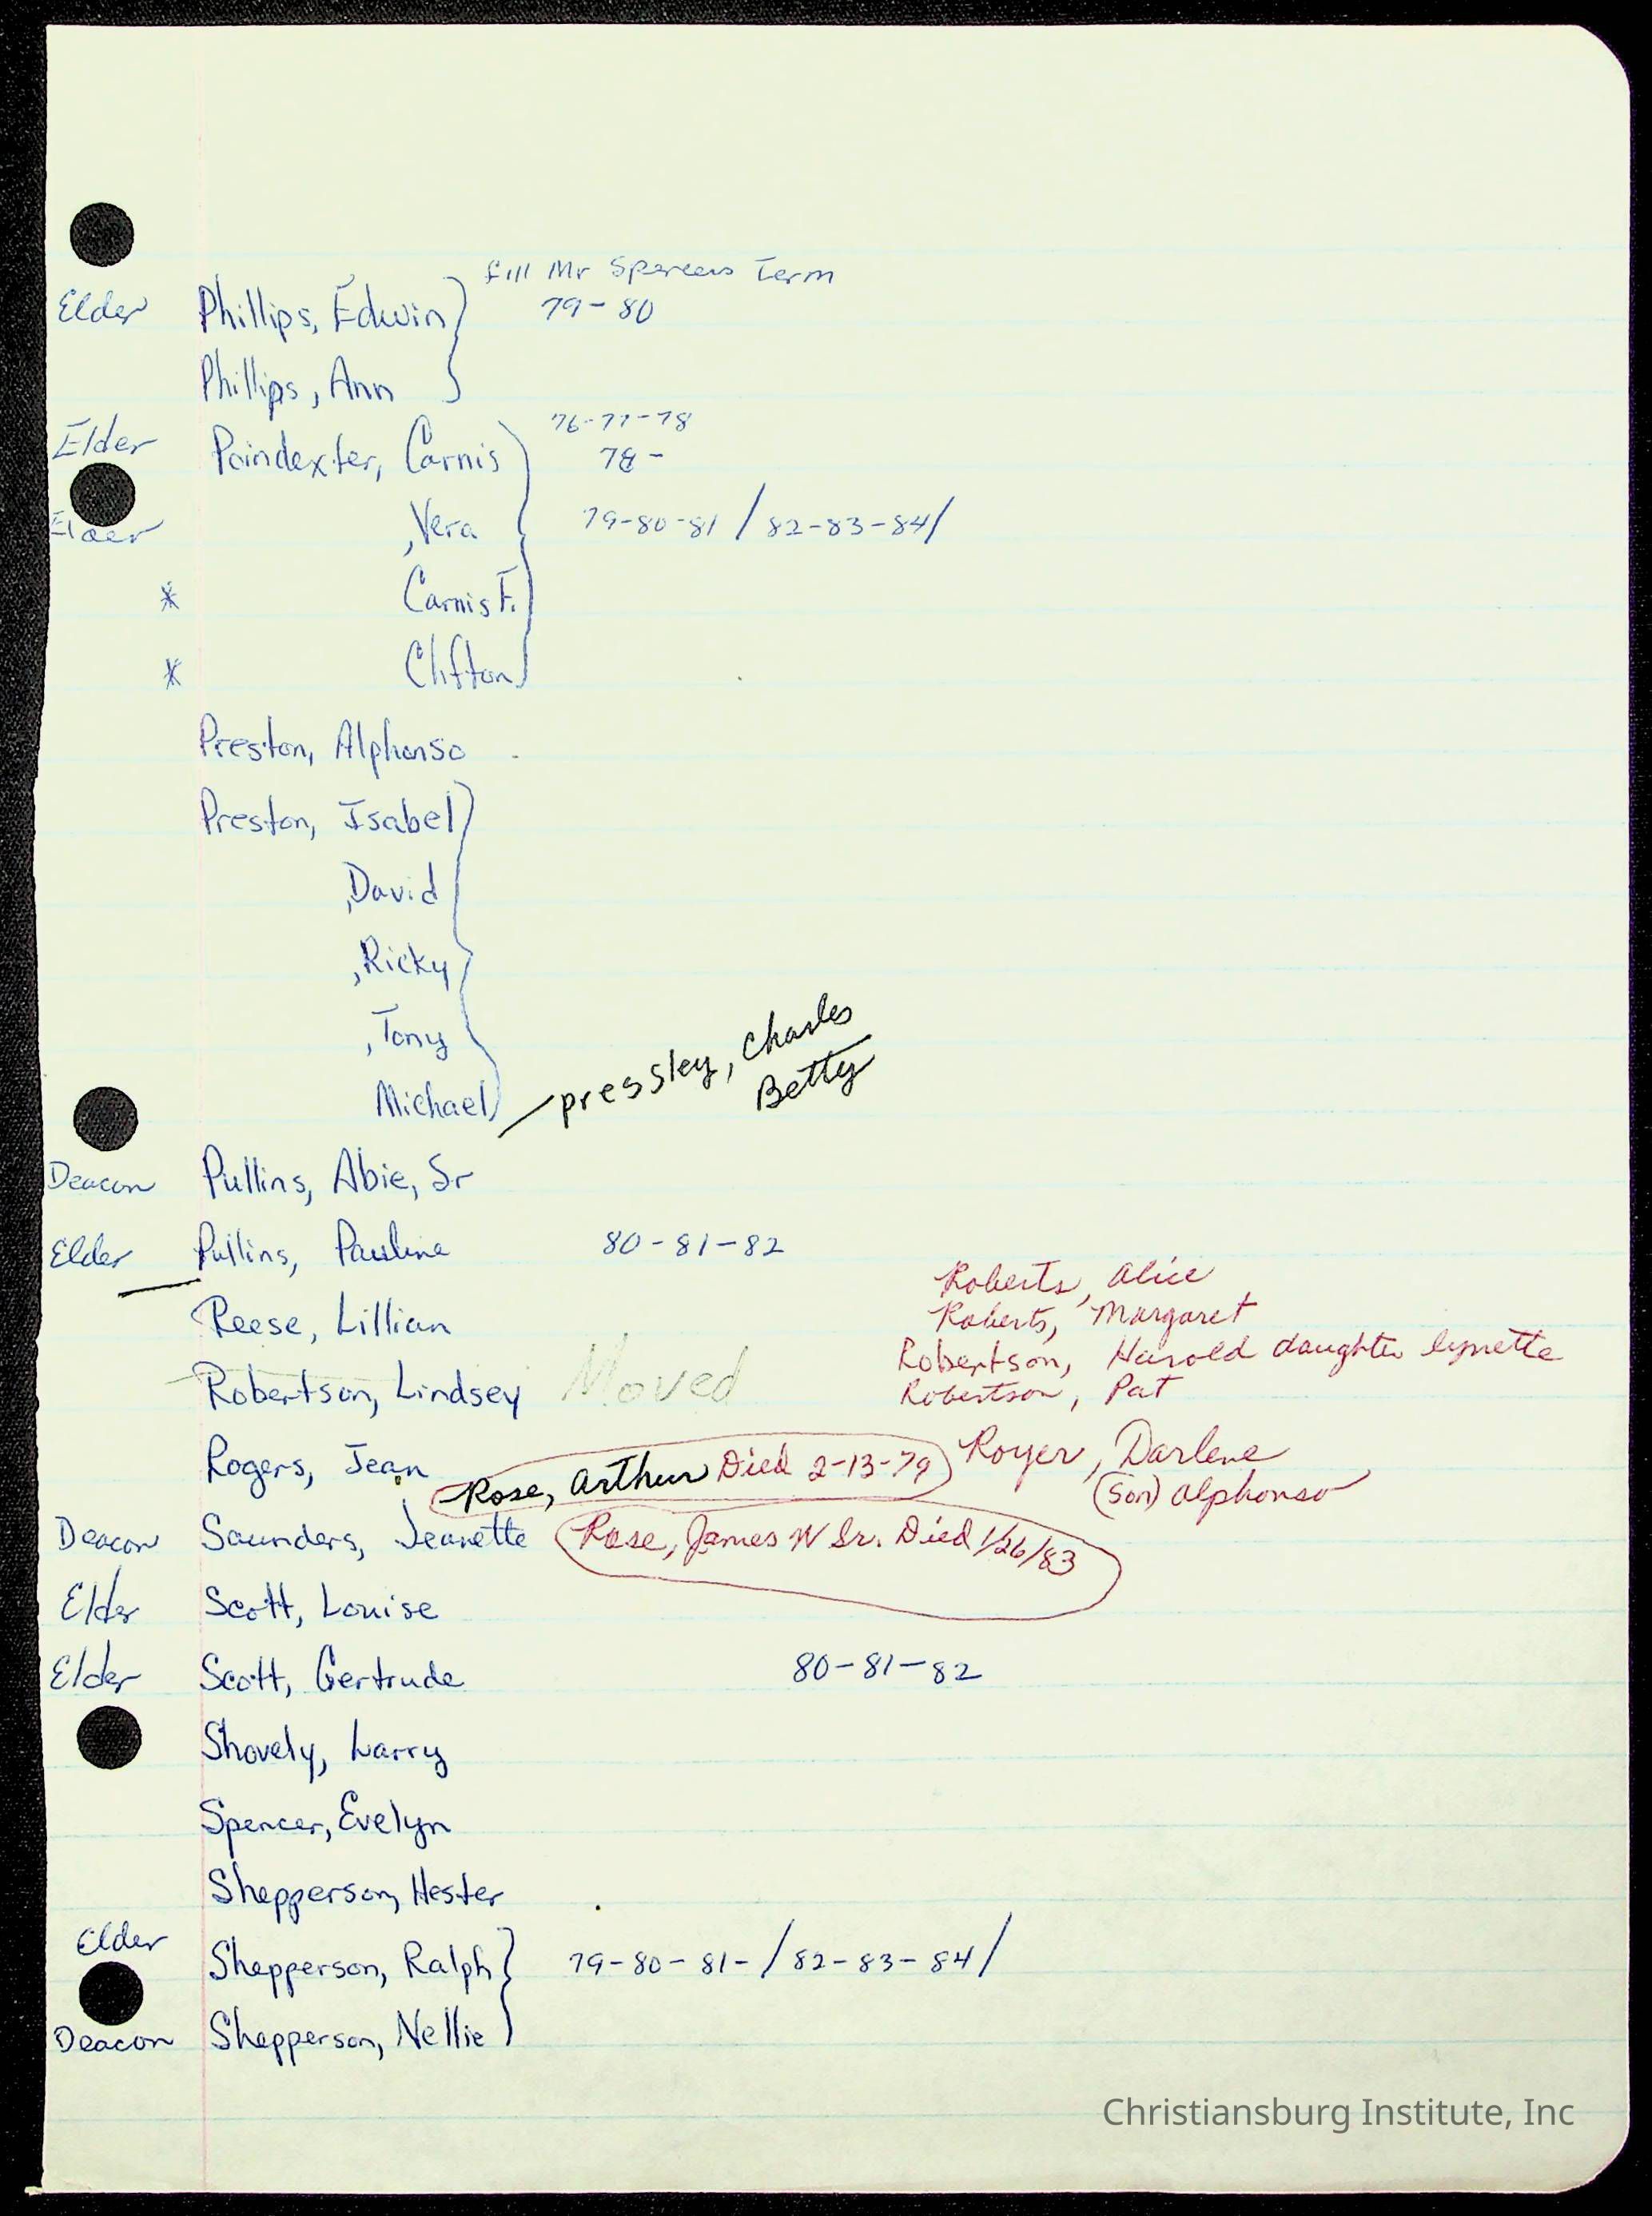 fill Mr Spencers Term
Elder Phillips, Edwin 79-80
Phillips, Ann
76-77-78
Elder Poindexter, Carnis 78-
Elder ,Vera 79-80-81 / 82-83-84/
* Carnis F.
* Clifton
Preston, Alphonso
Preston, Isabel
,David
,Ricky
,Tony
Michael
pressley, Charles
Betty
Deacon Pullins, Abie, Sr
Elder Pullins, Pauline 80-81-82
Roberts, Alice
Roberts, Margaret
Reese, Lillian
Robertson, Harold daughter lynette
Robertson, Pat
Robertson, Lindsey Moved
Rogers, Jean
Rose, Arthur Died 2-13-79
Royer, Darlene
(son) Alphonso
Deacon Saunders, Jeanette
Rose, James W Sr. Died 1/26/83
Elder Scott, Louise
Elder Scott, Gertrude 80-81-82
Shovely, Larry
Spencer, Evelyn
Shepperson, Hester
Elder Shepperson, Ralph 79-80-81-/82-83-84/
Deacon Shepperson, Nellie
Christiansburg Institute, Inc